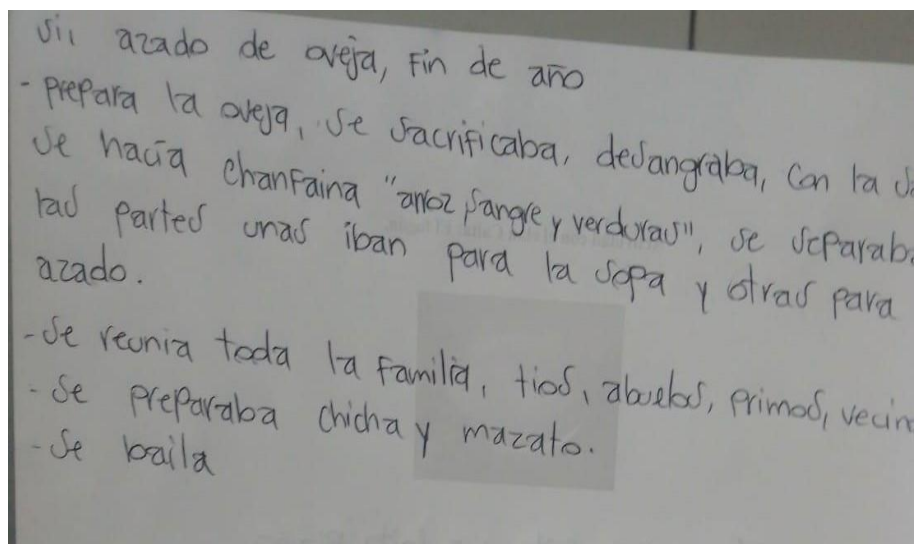 azado de oveja, Fin de año
- Prepara la oveja, se sacrificaba, desangraba, con la
se hacía chanfaina "arroz, sangre y verduras", se separab
las partes unas iban para la sopa y otras para
azado.
- se reunia toda la familia, tios, abuelos, primos, vecin
- se preparaba chicha y mazato.
- se baila